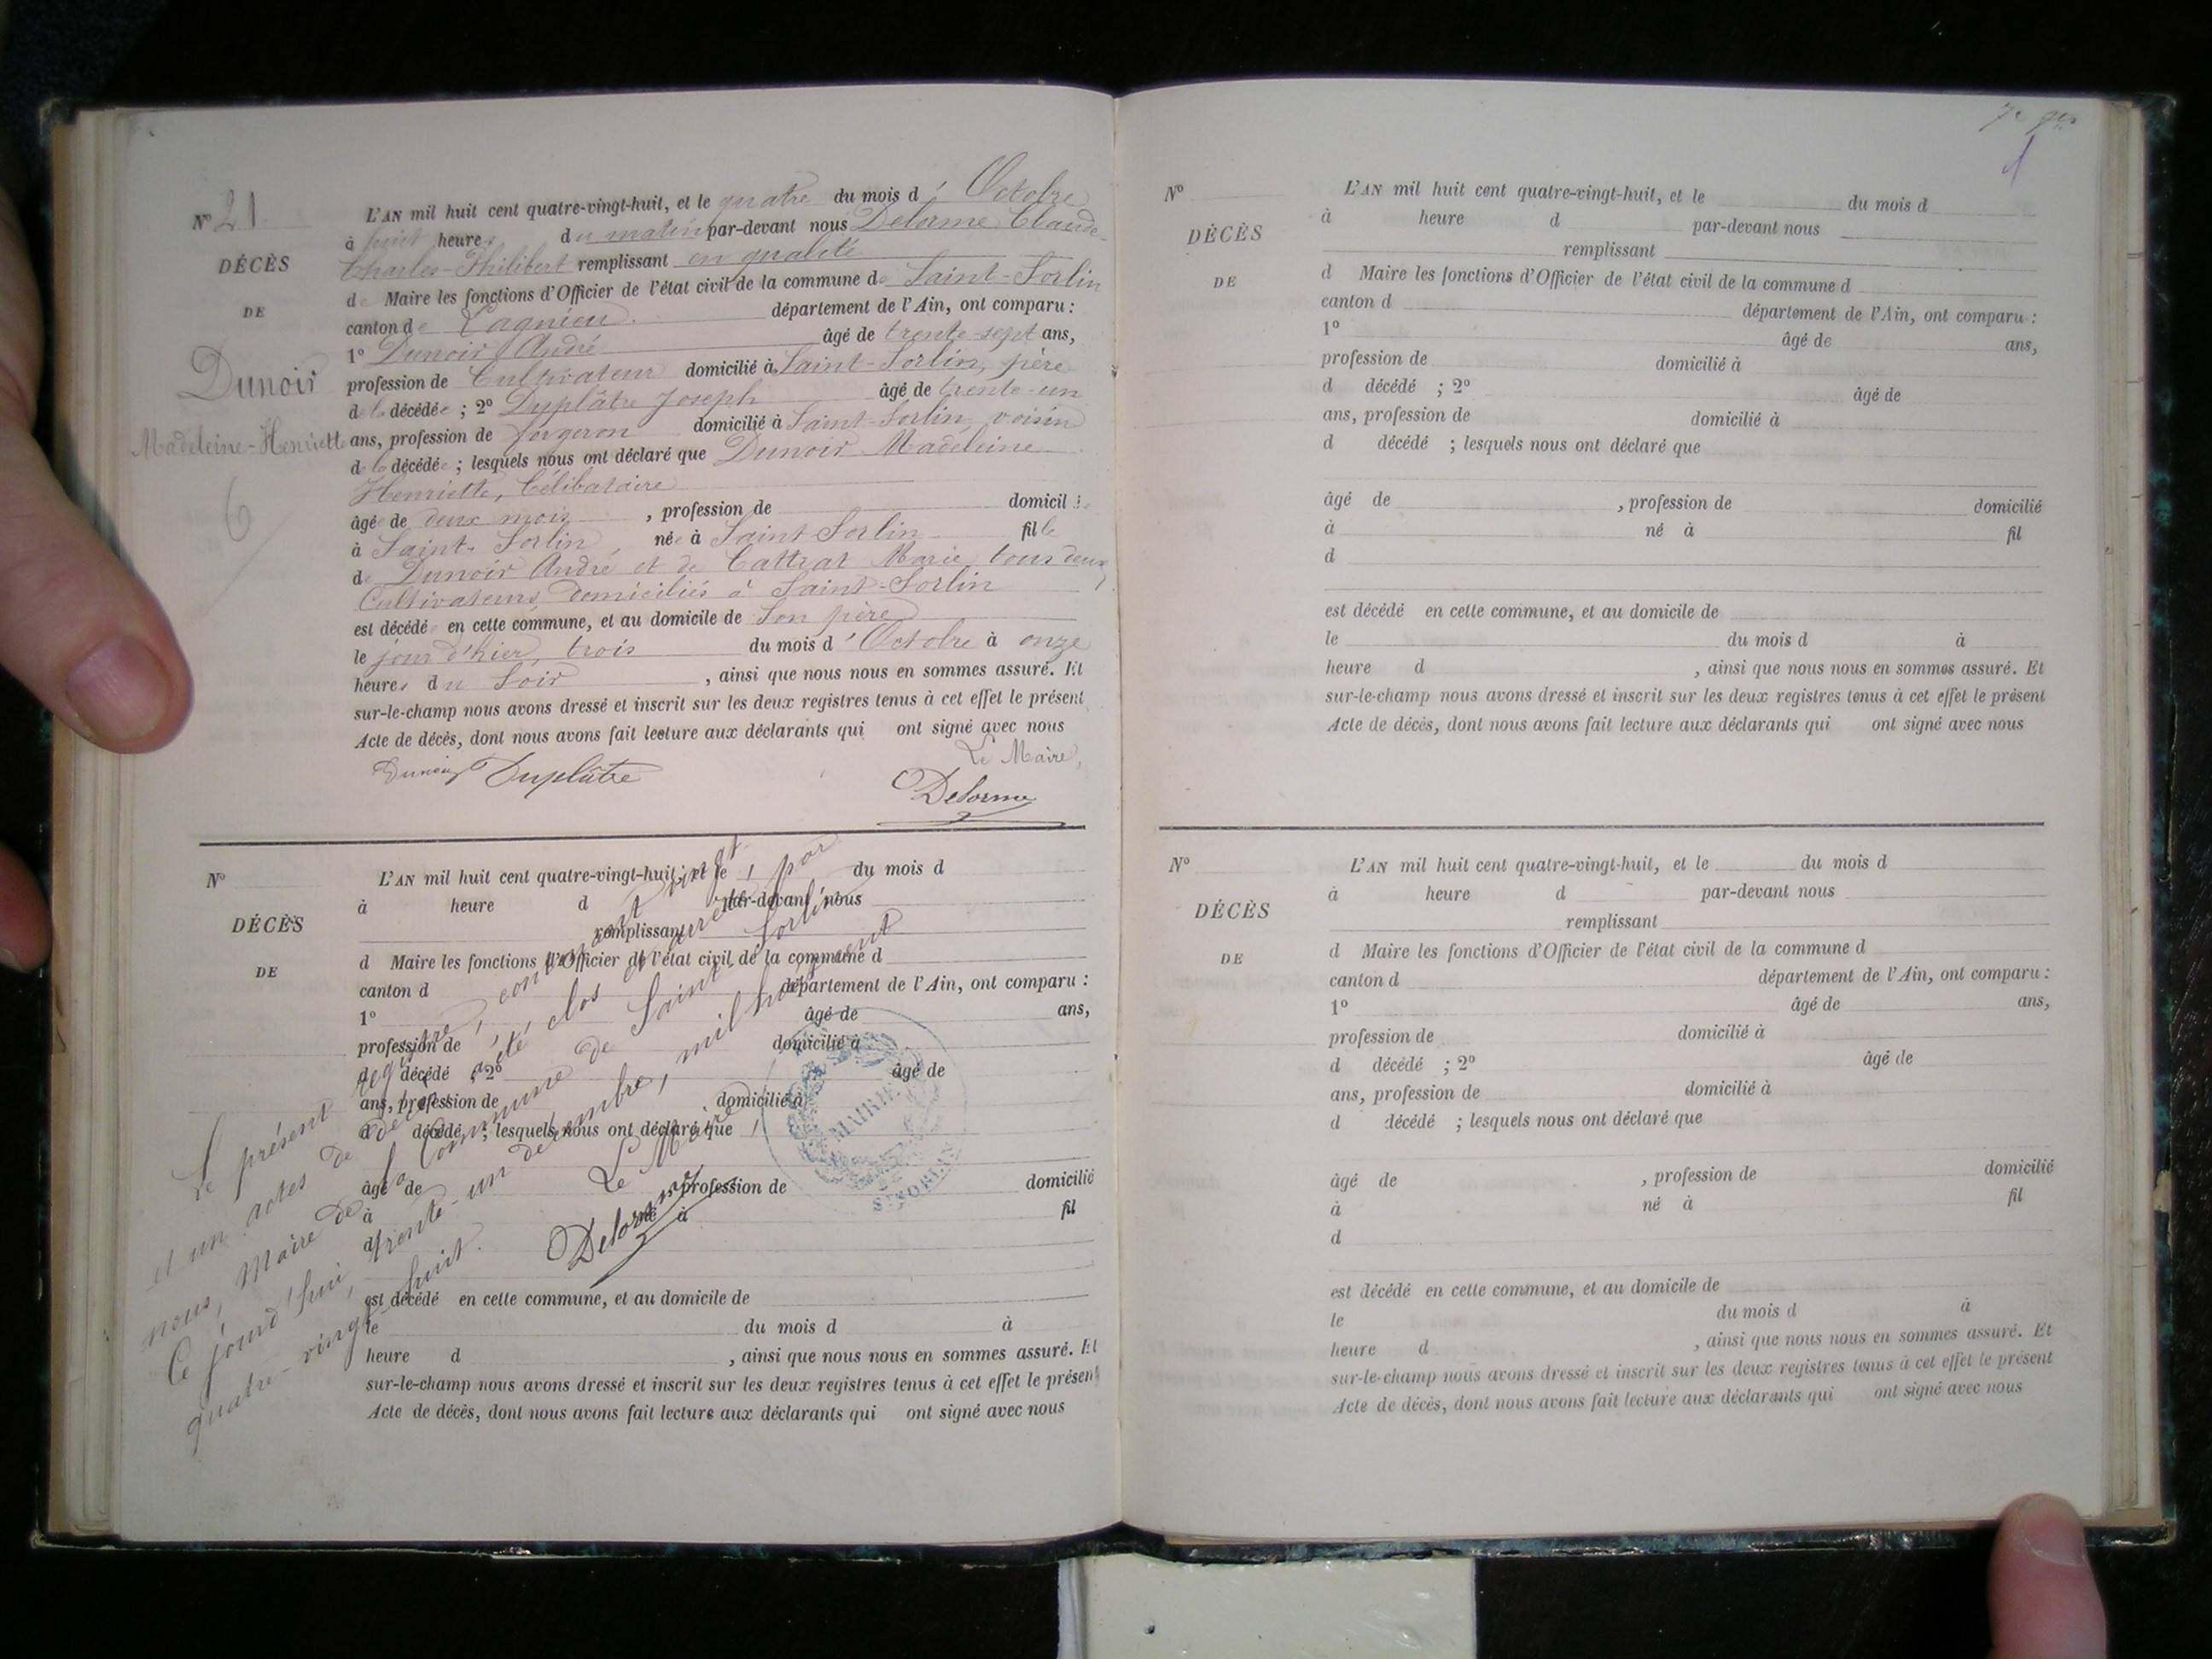 N° 21
DÉCÈS
DE
Dunoir
Madeleine-Henriette
6
L'AN mil huit cent quatre-vingt-huit, et le quatre du mois d'Octobre
à huit heures du matin par-devant nous Delorme Claude-
Charles-Philibert remplissant en qualité
de Maire les fonctions d'Officier de l'état civil de la commune de Saint-Sorlin
canton de Lagnieu. département de l'Ain, ont comparu :
1° Dunoir André âgé de trente-sept ans,
profession de Cultivateur domicilié à Saint-Sorlin, père
de la décédée ; 2° Duplâtre Joseph âgé de trente-un
ans, profession de forgeron domicilié à Saint-Sorlin, voisin
de la décédée ; lesquels nous ont déclaré que Dunoir Madeleine
Henriette, Célibataire
âgée de deux mois , profession de domicilié
à Saint-Sorlin, née à Saint-Sorlin fille
de Dunoir André et de Cattrat Marie, tous deux
Cultivateurs, domiciliés à Saint-Sorlin
est décédée en cette commune, et au domicile de Son père
le jour d'hier, trois du mois d'Octobre à onze
heures du Soir , ainsi que nous nous en sommes assuré. Et
sur-le-champ nous avons dressé et inscrit sur les deux registres tenus à cet effet le présent
Acte de décès, dont nous avons fait lecture aux déclarants qui ont signé avec nous
Le Maire,
Dunoir Duplâtre
Delorme
N°
DÉCÈS
DE
L'AN mil huit cent quatre-vingt-huit, et le du mois d
à heure d par-devant nous
remplissant
d Maire les fonctions d'Officier de l'état civil de la commune d
canton d département de l'Ain, ont comparu :
1° âgé de ans,
profession de domicilié à
d décédé ; 2° âgé de
ans, profession de domicilié à
d décédé ; lesquels nous ont déclaré que
âgé de , profession de domicilié
à né à fil
d
est décédé en cette commune, et au domicile de
le du mois d à
heure d , ainsi que nous nous en sommes assuré. Et
sur-le-champ nous avons dressé et inscrit sur les deux registres tenus à cet effet le présent
Acte de décès, dont nous avons fait lecture aux déclarants qui ont signé avec nous
Le présent registre, contenant vingt
et un actes de décès, a été clos et arrêté, par
nous, Maire de la Commune de Saint-Sorlin
Ce jourd'hui, trente-un décembre, mil huit cent
quatre-vingt-huit.
Le Maire,
Delorme
MAIRIE
ST SORLIN
N°
DÉCÈS
DE
L'AN mil huit cent quatre-vingt-huit, et le du mois d
à heure d par-devant nous
remplissant
d Maire les fonctions d'Officier de l'état civil de la commune d
canton d département de l'Ain, ont comparu :
1° âgé de ans,
profession de domicilié à
d décédé ; 2° âgé de
ans, profession de domicilié à
d décédé ; lesquels nous ont déclaré que
âgé de , profession de domicilié
à né à fil
d
est décédé en cette commune, et au domicile de
le du mois d à
heure d , ainsi que nous nous en sommes assuré. Et
sur-le-champ nous avons dressé et inscrit sur les deux registres tenus à cet effet le présent
Acte de décès, dont nous avons fait lecture aux déclarants qui ont signé avec nous
N°
DÉCÈS
DE
L'AN mil huit cent quatre-vingt-huit, et le du mois d
à heure d par-devant nous
remplissant
d Maire les fonctions d'Officier de l'état civil de la commune d
canton d département de l'Ain, ont comparu :
1° âgé de ans,
profession de domicilié à
d décédé ; 2° âgé de
ans, profession de domicilié à
d décédé ; lesquels nous ont déclaré que
âgé de , profession de domicilié
à né à fil
d
est décédé en cette commune, et au domicile de
le du mois d à
heure d , ainsi que nous nous en sommes assuré. Et
sur-le-champ nous avons dressé et inscrit sur les deux registres tenus à cet effet le présent
Acte de décès, dont nous avons fait lecture aux déclarants qui ont signé avec nous